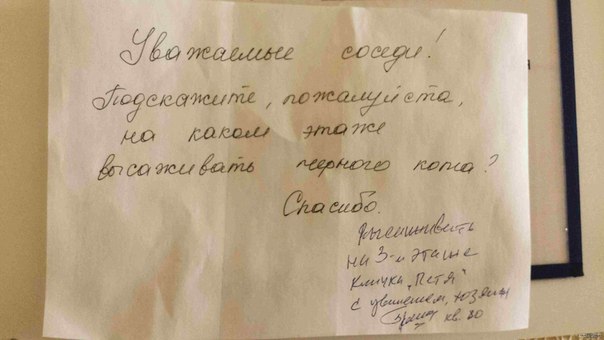 Уважаемые соседи!
Подскажите, пожалуйста,
на каком этаже
высаживать черного кота?
Спасибо.
Высаживать
на 3-м этаже
Кличка "Петя"
с уважением, хозяин
кв. 80